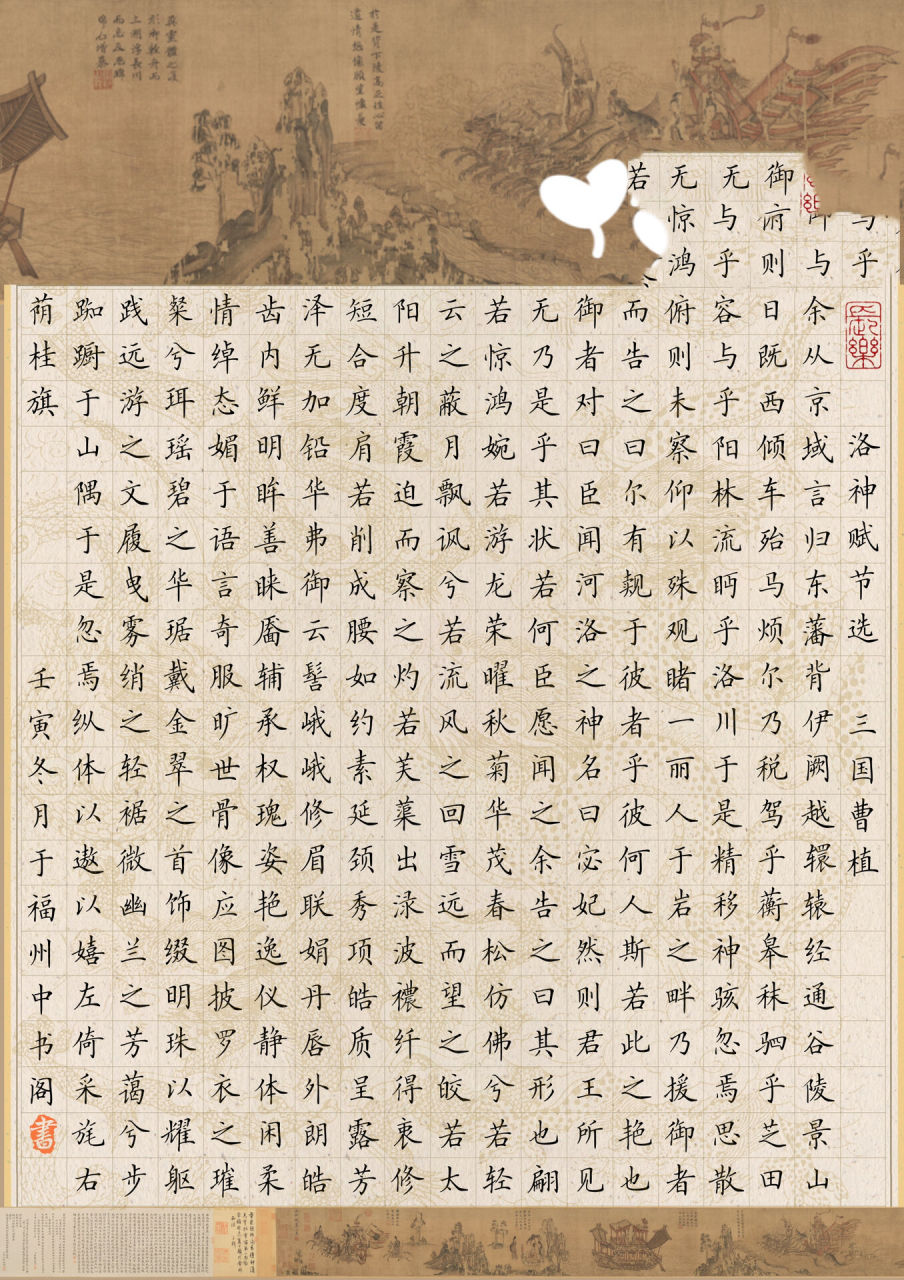 与乎
洛神赋节选 三国曹植
与余从京域言归东藩背伊阙越轘辕经通谷陵景山
御俯则日既西倾车殆马烦尔乃税驾乎蘅皋秣驷乎芝田
无与乎容与乎阳林流眄乎洛川于是精移神骇忽焉思散
无惊鸿俯则未察仰以殊观睹一丽人于岩之畔乃援御者
若而告之曰尔有觌于彼者乎彼何人斯若此之艳也
御者对曰臣闻河洛之神名曰宓妃然则君王所见
无乃是乎其状若何臣愿闻之余告之曰其形也翩
若惊鸿婉若游龙荣曜秋菊华茂春松仿佛兮若轻
云之蔽月飘讽兮若流风之回雪远而望之皎若太
阳升朝霞迫而察之灼若芙蕖出渌波襛纤得衷修
短合度肩若削成腰如约素延颈秀项皓质呈露芳
泽无加铅华弗御云髻峨峨修眉联娟丹唇外朗皓
齿内鲜明眸善睐靥辅承权瑰姿艳逸仪静体闲柔
情绰态媚于语言奇服旷世骨像应图披罗衣之璀
粲兮珥瑶碧之华琚戴金翠之首饰缀明珠以耀躯
践远游之文履曳雾绡之轻裾微幽兰之芳蔼兮步
踟蹰于山隅于是忽焉纵体以遨以嬉左倚采旄右
荫桂旗 壬寅冬月于福州中书阁
書